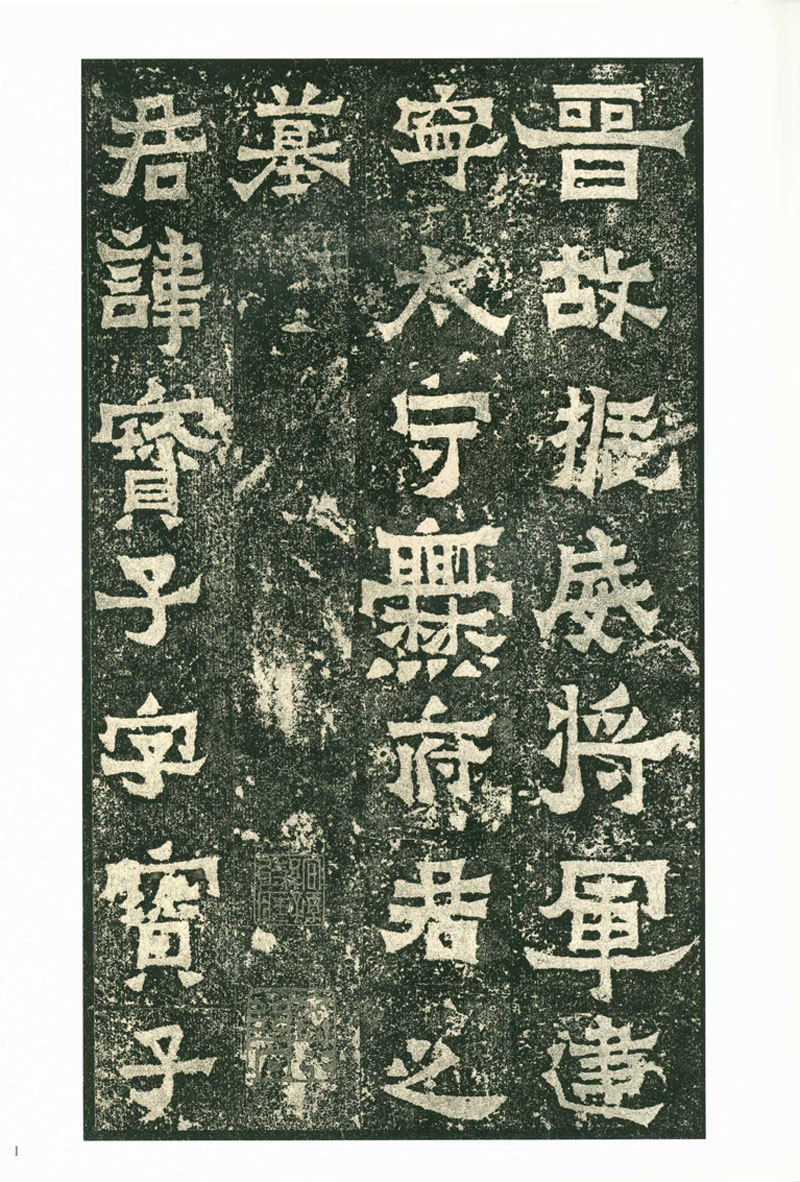 晋故振威將軍建
寧太守爨府君之
墓
君諱寶子字寶子
1